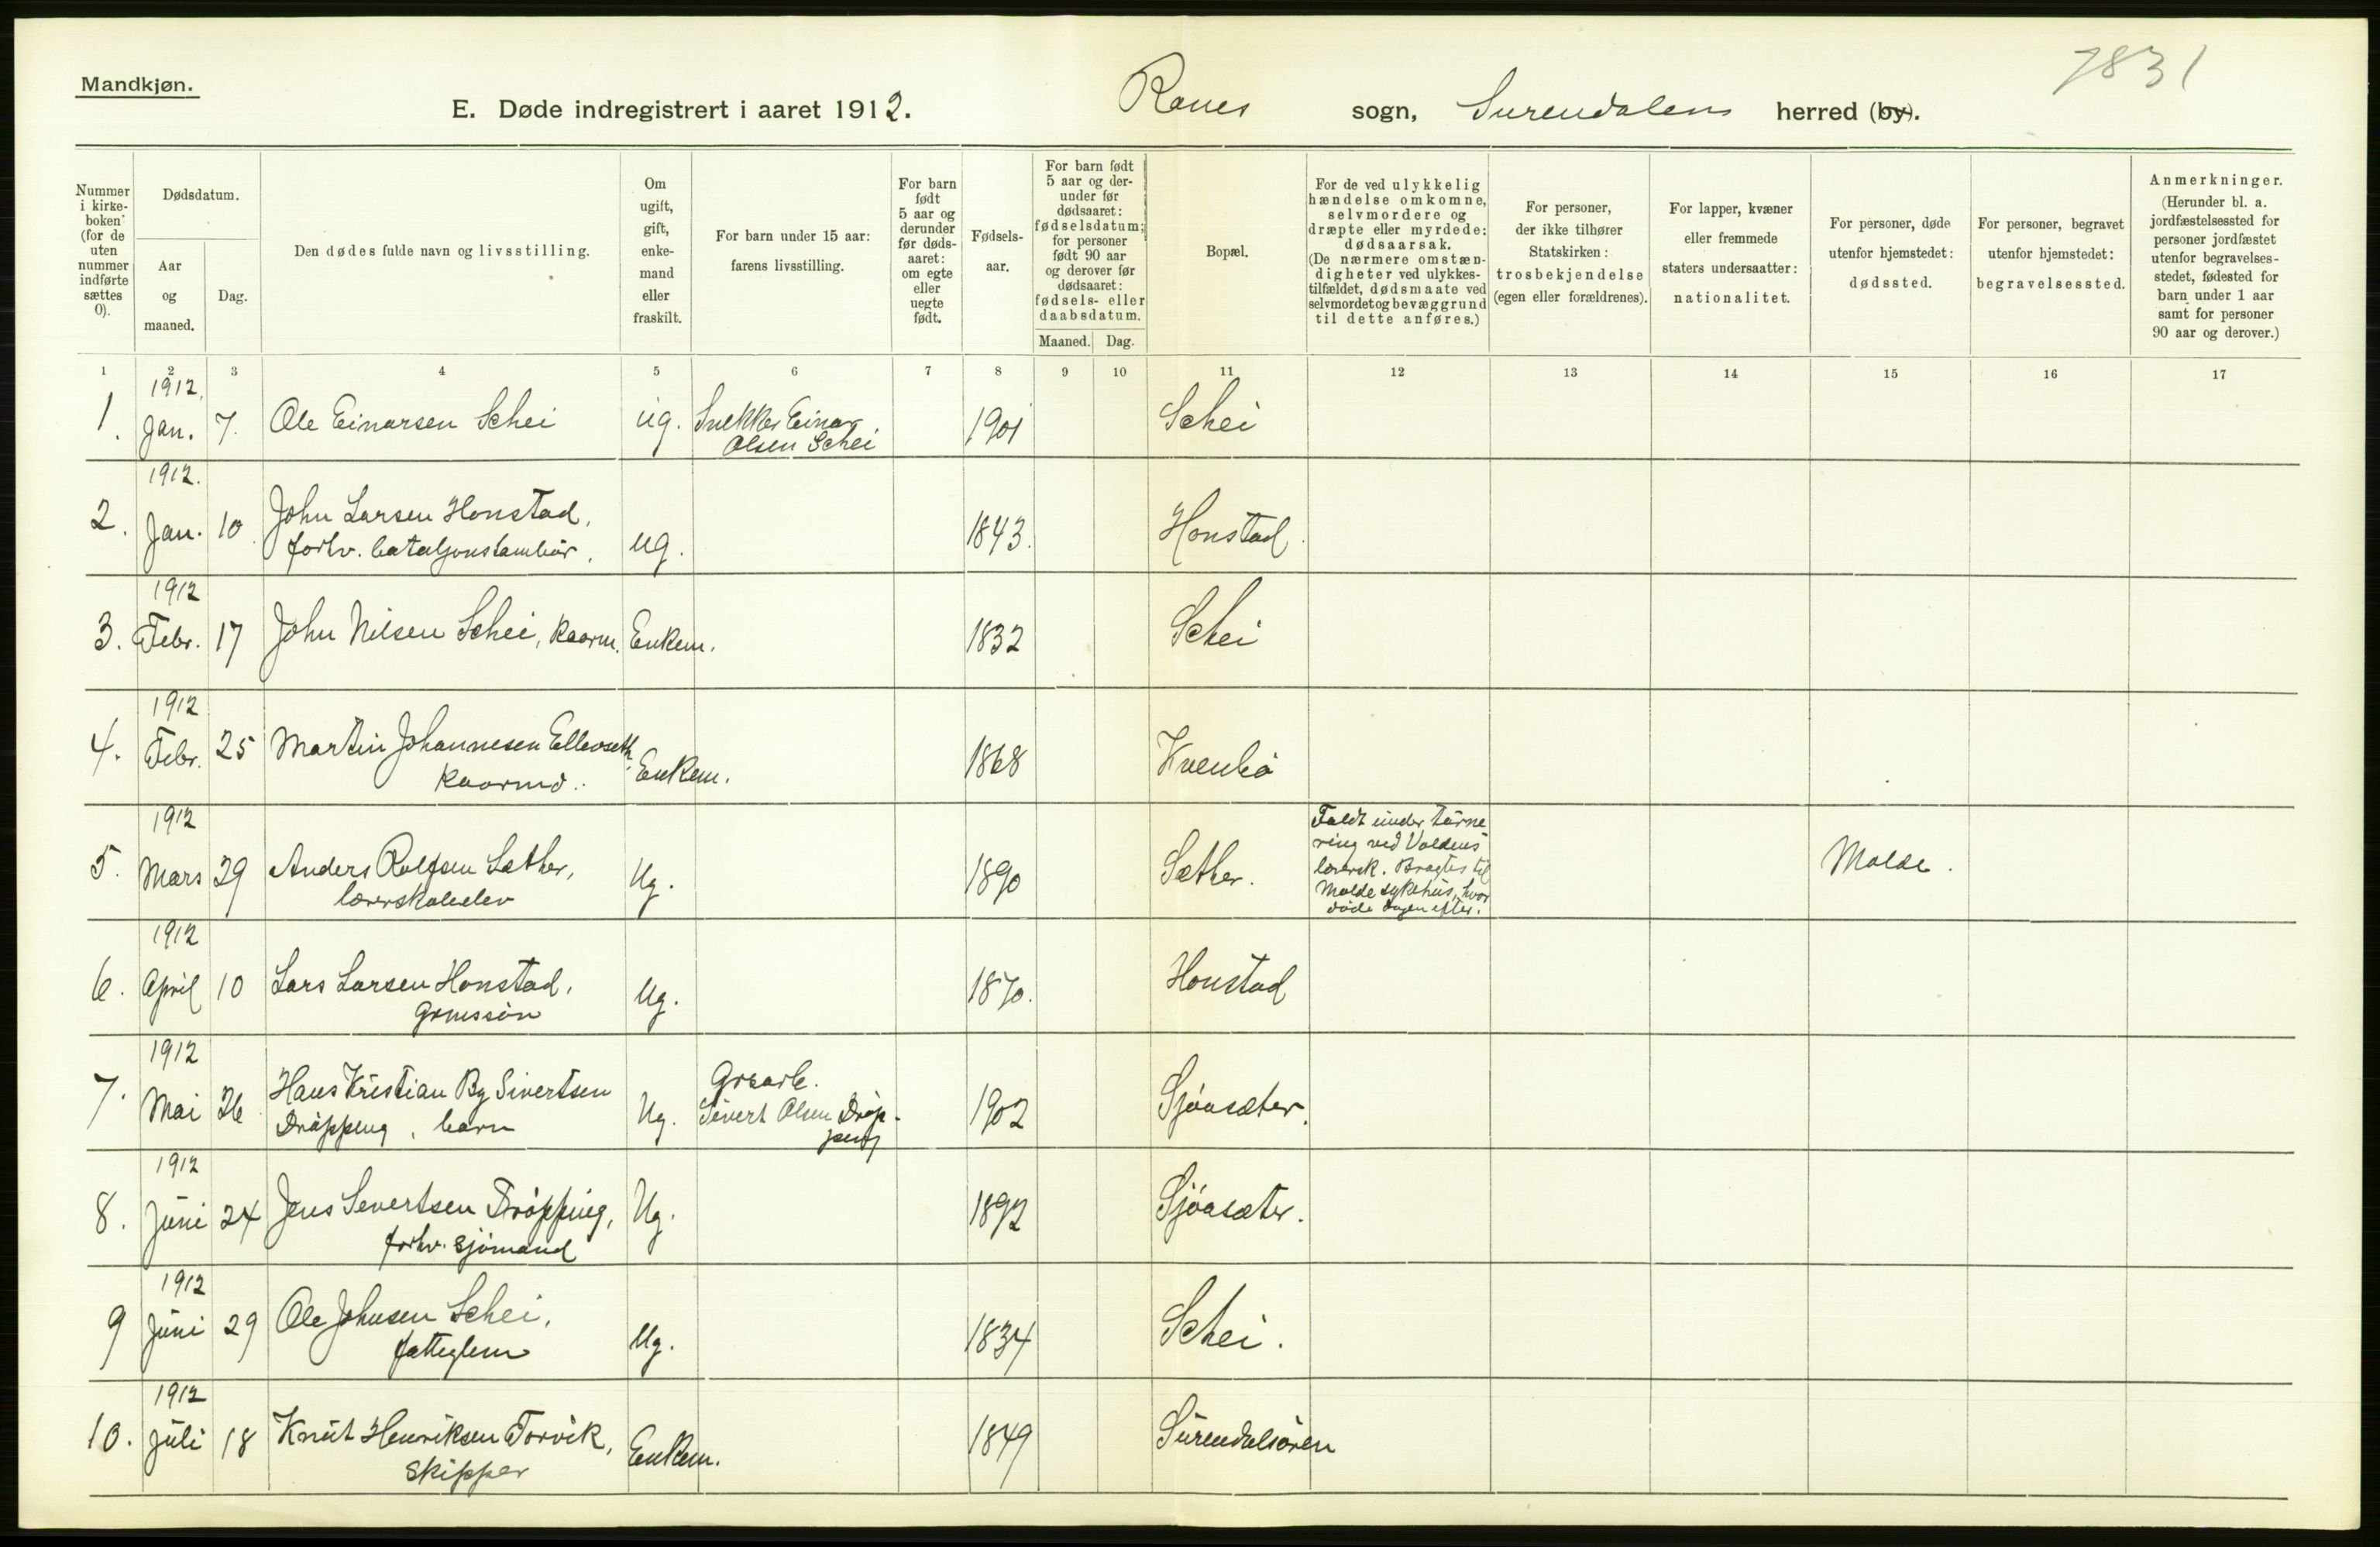 7831
Mandkjøn.
E. Døde indregistrert i aaret 1912. Ranes sogn, Surendalens herred (by).
Nummer i kirke- boken (for de uten nummer indførte sættes 0).
Dødsdatum.
Aar og maaned.
Dag.
Den dødes fulde navn og livsstilling.
Om ugift, gift, enke- mand eller fraskilt.
For barn under 15 aar: farens livsstilling.
For barn født 5 aar og derunder før døds- aaret: om egte eller uegte født.
Fødsels- aar.
For barn født 5 aar og der- under før dødsaaret: fødselsdatum; for personer født 90 aar og derover før dødsaaret: fødsels- eller daabsdatum.
Maaned. Dag.
Bopæl.
For de ved ulykkelig hændelse omkomne, selvmordere og dræpte eller myrdede: dødsaarsak. (De nærmere omstæn- digheter ved ulykkes- tilfældet, dødsmaate ved selvmord et og bevæggrund til dette anføres.)
For personer, der ikke tilhører Statskirken: trosbekjendelse (egen eller forældrenes).
For lapper, kvæner eller fremmede staters undersaatter: nationalitet.
For personer, døde utenfor hjemstedet: dødssted.
For personer, begravet utenfor hjemstedet: begravelsessted.
Anmerkninger. (Herunder bl. a. jordfæstelsessted for personer jordfæstet utenfor begravelses- stedet, fødested for barn under 1 aar samt for personer 90 aar og derover.)
1 2 3 4 5 6 7 8 9 10 11 12 13 14 15 16 17
1912.
1. Jan. 7. Ole Einarsen Schei ug. Snekker Einar 1901 Schei
Olsen Schei
1912.
2. Jan. 10 John Larsen Honstad, 1843. Honstad.
forhv. bataljonstambur. ug.
1912
3. Febr. 17 John Nilsen Schei, kaarm. Enkem. 1832 Schei
1912
4. Febr. 25 Martin Johannesen Ellevseth 1868 Kvenbø
kaarmd. Enkem.
1912
5. Mars 29 Anders Rolfsen Sæther, Ug. 1890 Sæther. Molde.
lærerskoleelev
Faldt under turne
ring ved Voldens
lærersk. Bragtes til
Molde sykehus, hvor
døde dagen efter.
1912
6. April 10 Lars Larsen Honstad, Ug. 1870. Honstad
Grmssøn
1912
7. Mai 26 Hans Kristian By Sivertsen Grbarb.
Drøpping, barn Ug. Sivert Olsen Drøp- 1902 Sjøasæter.
ping
1912
8. Juni 24 Jens Severtsen Drøpping, Ug. 1892 Sjøasæter.
forhv. sjømand
1912
9 Juni 29 Ole Johnsen Schei, Ug. 1834 Schei.
fattiglem
1912
10. Juli 18 Knut Henriksen Torvik, Enkem. 1849 Surendalsøren
skipper